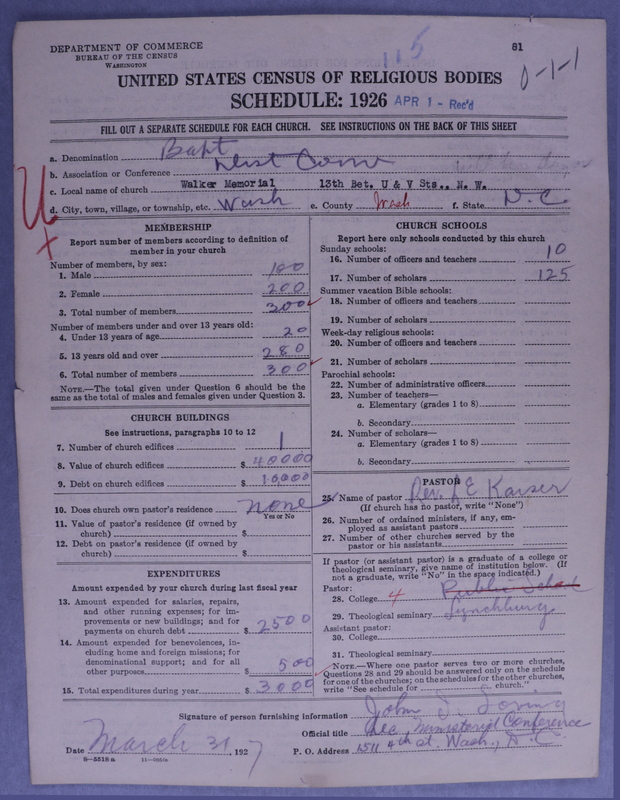 DEPARTMENT OF COMMERCE
BUREAU OF THE CENSUS
WASHINGTON
115
81
0-1-1
UNITED STATES CENSUS OF RELIGIOUS BODIES
SCHEDULE: 1926
APR 1 - Rec'd
FILL OUT A SEPARATE SCHEDULE FOR EACH CHURCH. SEE INSTRUCTIONS ON THE BACK OF THIS SHEET
a. Denomination Bapt
b. Association or Conference Dist Conv
c. Local name of church Walker Memorial 13th Bet. U & V Sts., N. W.
d. City, town, village, or township, etc. Wash e. County Wash f. State D. C.
MEMBERSHIP
Report number of members according to definition of member in your church
Number of members, by sex:
1. Male 100
2. Female 200
3. Total number of members 300
Number of members under and over 13 years old:
4. Under 13 years of age 20
5. 13 years old and over 280
6. Total number of members 300
NOTE.—The total given under Question 6 should be the same as the total of males and females given under Question 3.
CHURCH BUILDINGS
See instructions, paragraphs 10 to 12
7. Number of church edifices 1
8. Value of church edifices $ 40000
9. Debt on church edifices $ 10000
10. Does church own pastor's residence none
Yes or No
11. Value of pastor's residence (if owned by church) $
12. Debt on pastor's residence (if owned by church) $
EXPENDITURES
Amount expended by church during last fiscal year
13. Amount expended for salaries, repairs, and other running expenses; for improvements or new buildings; and for payments on church debt $ 2500
14. Amount expended for benevolences, including home and foreign missions; for denominational support; and for all other purposes $ 500
15. Total expenditures during year $ 3000
CHURCH SCHOOLS
Report here only schools conducted by this church
Sunday schools:
16. Number of officers and teachers 10
17. Number of scholars 125
Summer vacation Bible schools:
18. Number of officers and teachers
19. Number of scholars
Week-day religious schools:
20. Number of officers and teachers
21. Number of scholars
Parochial schools:
22. Number of administrative officers
23. Number of teachers—
a. Elementary (grades 1 to 8)
b. Secondary
24. Number of scholars—
a. Elementary (grades 1 to 8)
b. Secondary
PASTOR
25. Name of pastor Rev. J E Kaiser
(If church has no pastor, write "None")
26. Number of ordained ministers, if any, employed as assistant pastors
27. Number of other churches served by the pastor or his assistants
If pastor (or assistant pastor) is a graduate of a college or theological seminary, give name of institution below. (If not a graduate, write "No" in the space indicated.)
Pastor:
28. College 4 Public School
29. Theological seminary Lynchburg
Assistant pastor:
30. College
31. Theological seminary
NOTE.—Where one pastor serves two or more churches, Questions 28 and 29 should be answered only on the schedule for one of the churches; on the schedules for the other churches, write "See schedule for church."
Signature of person furnishing information John S. Loving
Official title Sec. Ministerial Conference
Date March 31, 1927 P. O. Address 1511 4th st. Wash., D. C.
8—5518a